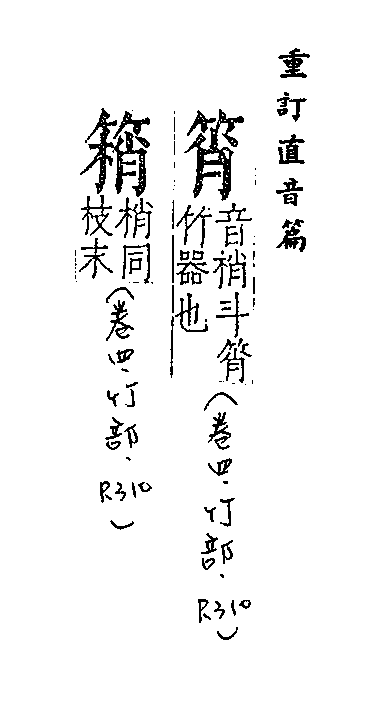 重訂直音篇
筲
音梢斗筲
竹器也
(卷四.竹部.R310)
梢同
枝末
(卷四.竹部.R310)